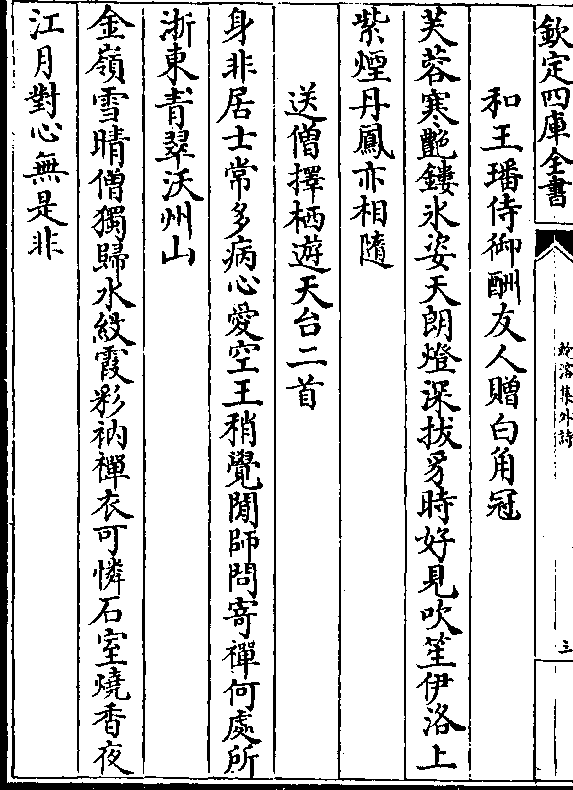 欽定四庫全書
鮑溶集外詩
三
和王璠侍御酬友人贈白角冠
芙蓉寒艷鏤氷姿天朗燈深拔豸時好見吹笙伊洛上
紫煙丹鳳亦相隨
送僧擇栖遊天台二首
身非居士常多病心愛空王稍覺閒師問寄禪何處所
浙東青翠沃州山
金嶺雪晴僧獨歸水紋霞彩衲禪衣可憐石室燒香夜
江月對心無是非